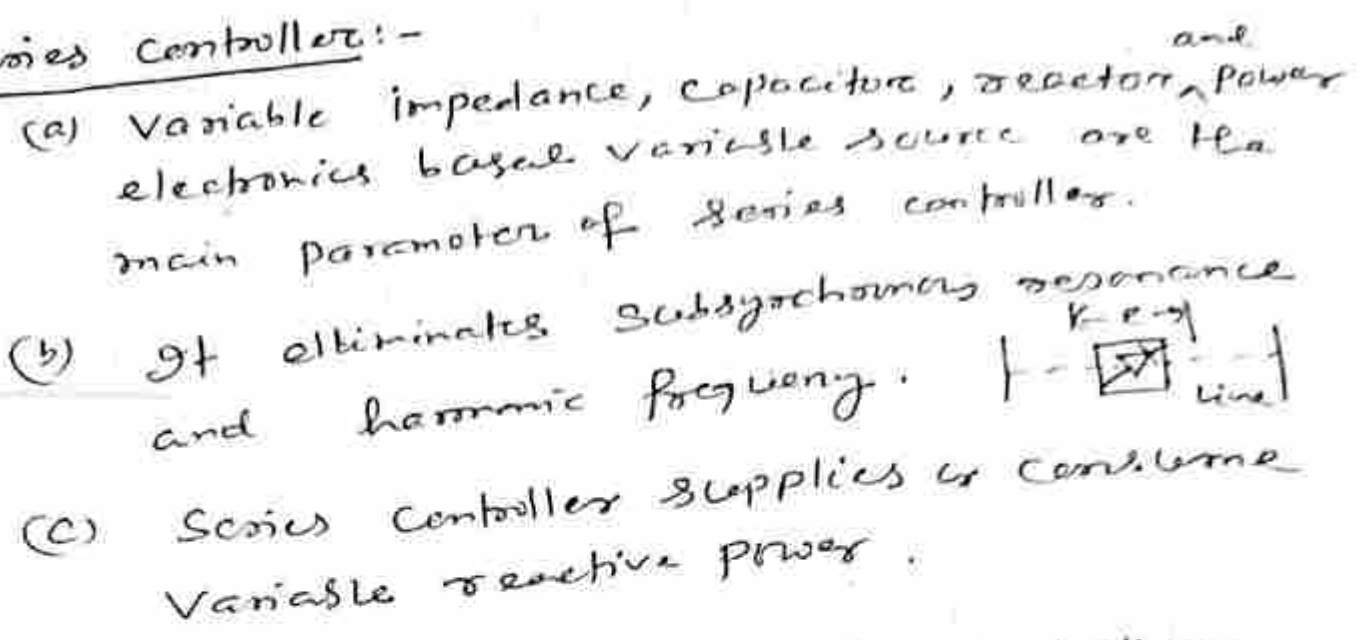 ries Controller:-
and
(a) Variable impedance, capacitor, reactor ^ Power
electronics based variable source are the
main parameter of series controller.
(b) It elliminates Subsynchornous resonance
and harmonic frequency.
Line
(c) Series Controller supplies or consume
Variable reactive power.